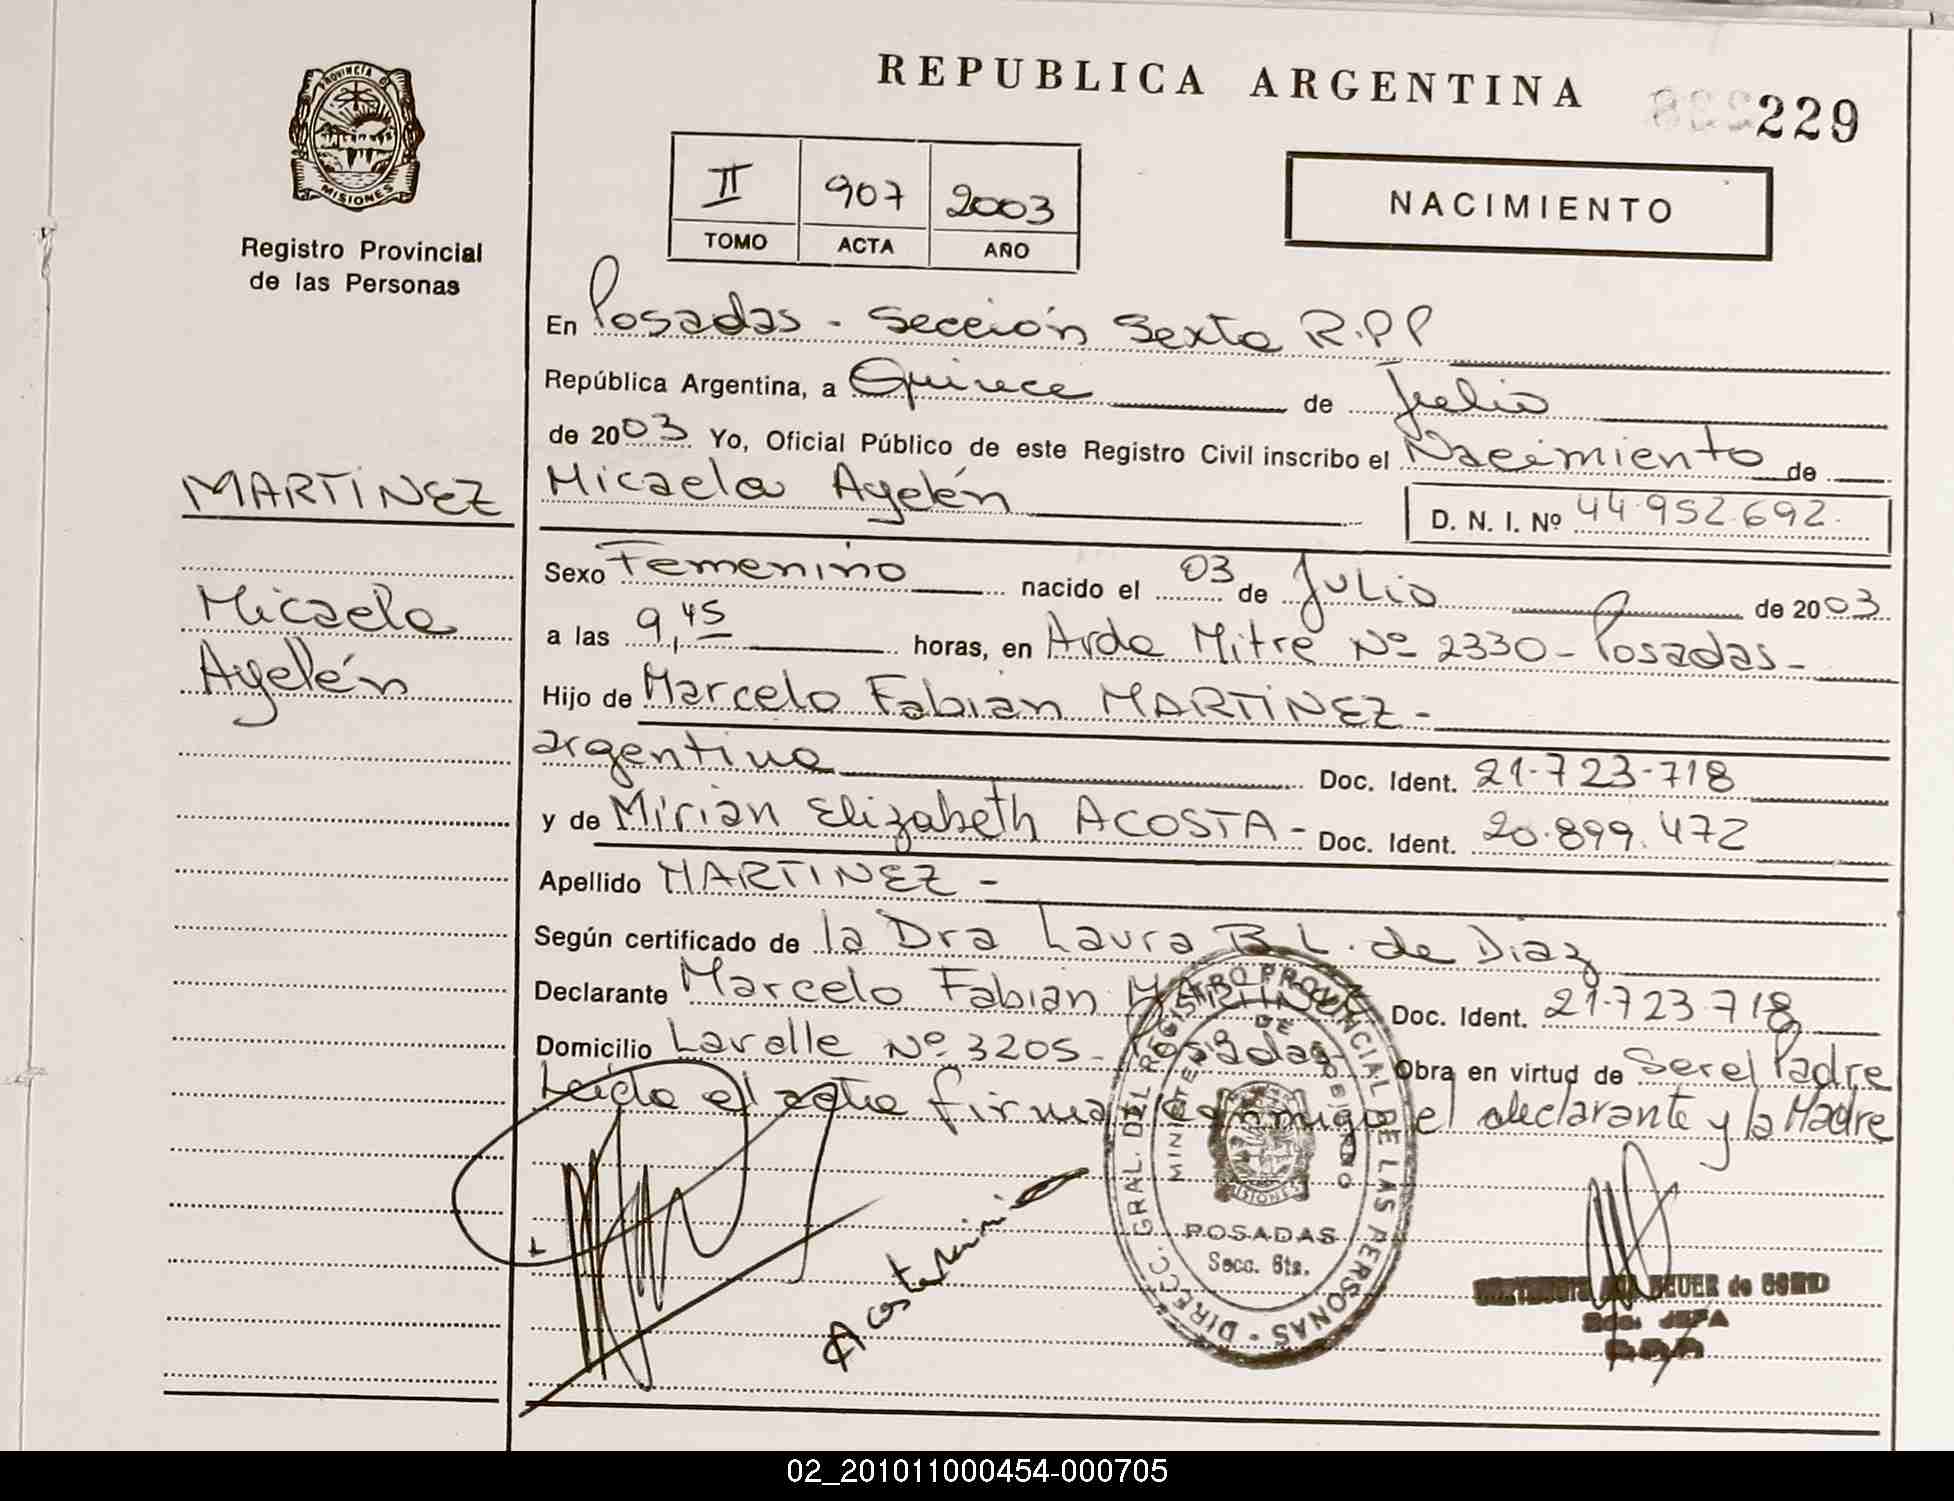 REPUBLICA ARGENTINA
229
PROVINCIA DE
MISIONES
Registro Provincial
de las Personas
II 907 2003
TOMO ACTA AÑO
NACIMIENTO
En Posadas - Sección Sexta R.P.P
República Argentina, a Quince de Julio
de 2003 Yo, Oficial Público de este Registro Civil inscribo el Nacimiento de
MARTINEZ
Micaela Ayelén
D. N. I. Nº 44.952.692.
Micaela
Ayelén
Sexo Femenino nacido el 03 de Julio de 2003
a las 9,45 horas, en Avda Mitre Nº 2330 - Posadas -
Hijo de Marcelo Fabián MARTINEZ -
argentina Doc. Ident. 21-723-718
y de Mirian Elizabeth ACOSTA - Doc. Ident. 20.899.472
Apellido MARTINEZ -
Según certificado de la Dra Laura B L. de Diaz
Declarante Marcelo Fabian MARTINEZ Doc. Ident. 21-723-718
Domicilio Lavalle Nº 3205 - Posadas - Obra en virtud de Ser el Padre
Leída el acta firman conmigo el declarante y la Madre
DIRECC. GRAL. DEL REGISTRO PROVINCIAL DE LAS PERSONAS
MINISTERIO DE GOBIERNO
MISIONES
POSADAS
Secc. 6ta.
Acosta Mirian
BEUER de
JEFA
02_201011000454-000705